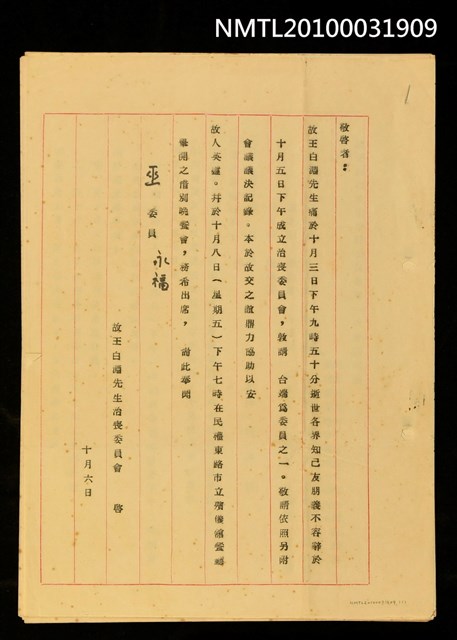 NMTL20100031909
1
敬啓者：
故王白淵先生痛於十月三日下午九時五十分逝世各界知己友朋義不容辭於
十月五日下午成立治喪委員會，敦請　台端為委員之一。敬請依照另附
會議議決記錄。本於故交之誼鼎力協助以安
故人英靈。并於十月八日（星期五）下午七時在民權東路市立殯儀館靈堂
舉開之惜別晚餐會，務希出席，　此奉聞
巫委員永福
故王白淵先生治喪委員會　啓
十月六日
NMTL20100031909